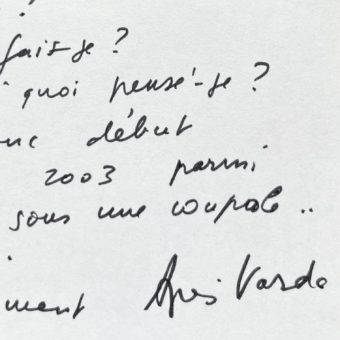 ?
fais-je ?
quoi pensé-je ?
début
2003 parmi
sous une coupole ..
.
ment Agnès Varda